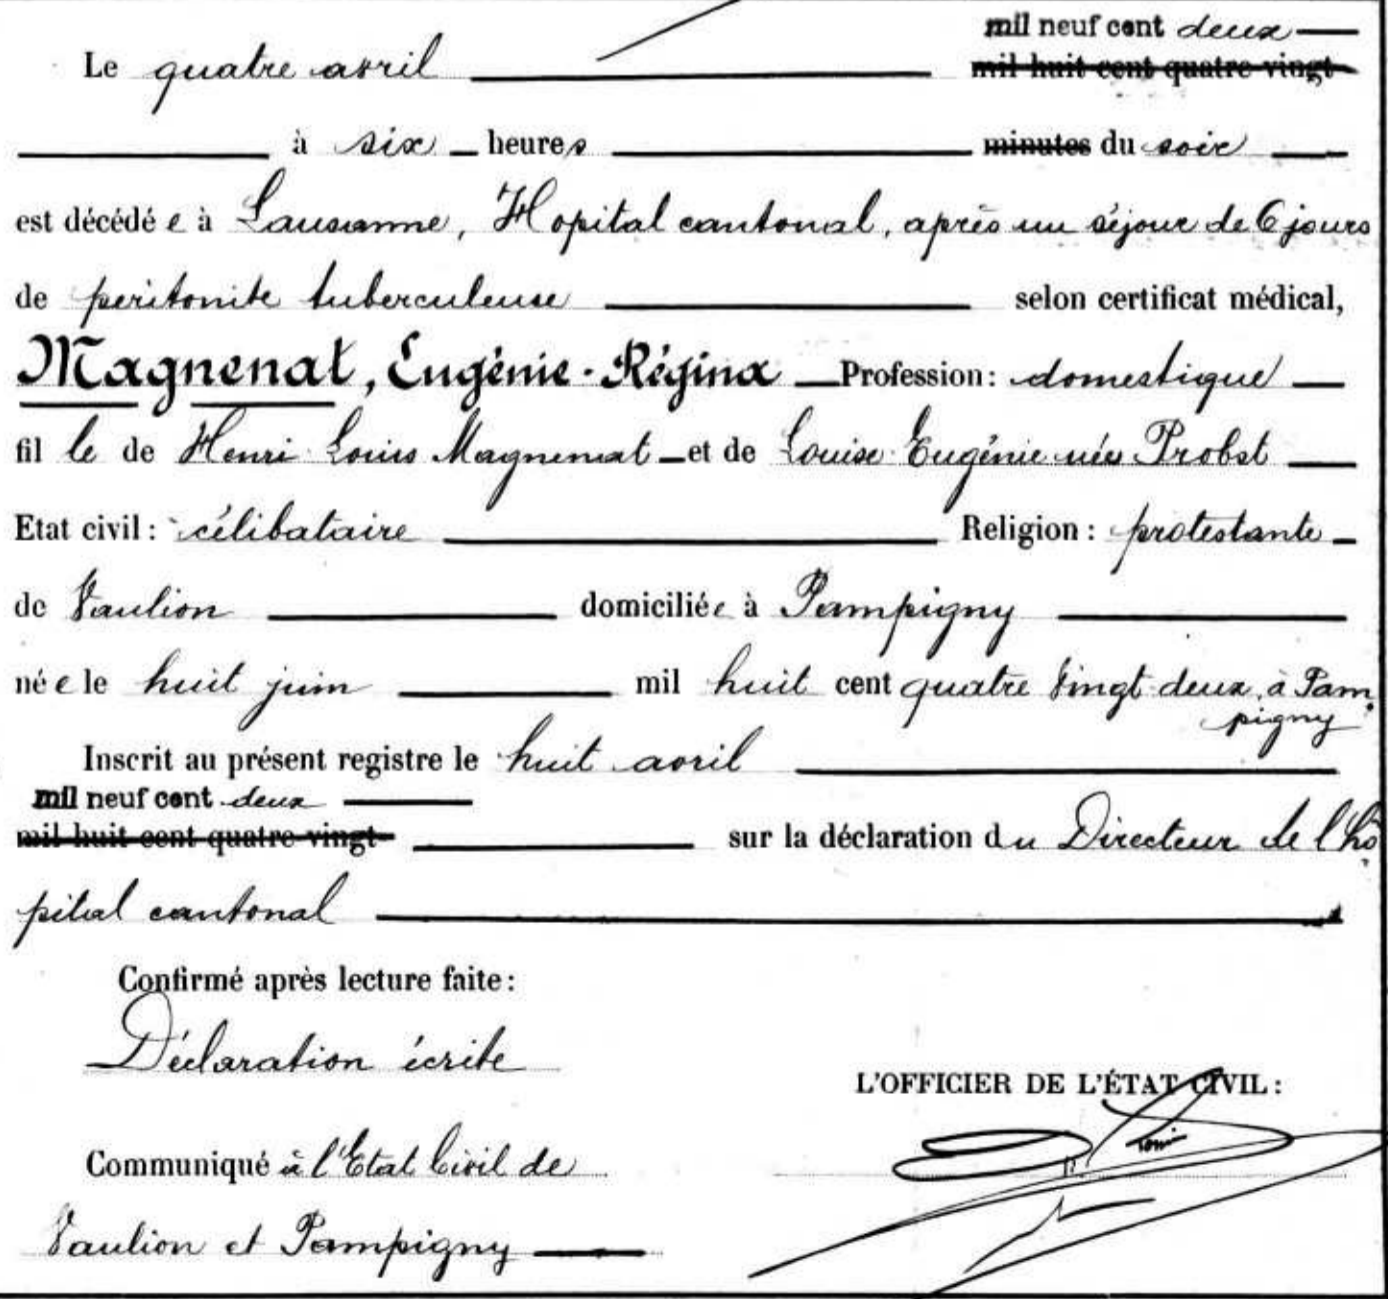 mil neuf cent deux
Le quatre avril mil huit cent quatre-vingt
à six heures minutes du soir
est décédée à Lausanne, Hopital cantonal, après un séjour de 6 jours
de peritonite tuberculeuse selon certificat médical,
Magnenat, Eugénie-Régina Profession: domestique
fille de Henri Louis Magnenat et de Louise Eugénie née Probst
Etat civil: célibataire Religion: protestante
de Vaulion domiciliée à Pampigny
née le huit juin mil huit cent quatre vingt deux, à Pam
pigny
Inscrit au présent registre le huit avril
mil neuf cent deux
mil huit cent quatre-vingt sur la déclaration du Directeur de l'hô
pital cantonal
Confirmé après lecture faite:
Déclaration écrite
L'OFFICIER DE L'ÉTAT CIVIL:
Communiqué à l'Etat Civil de
Vaulion et Pampigny